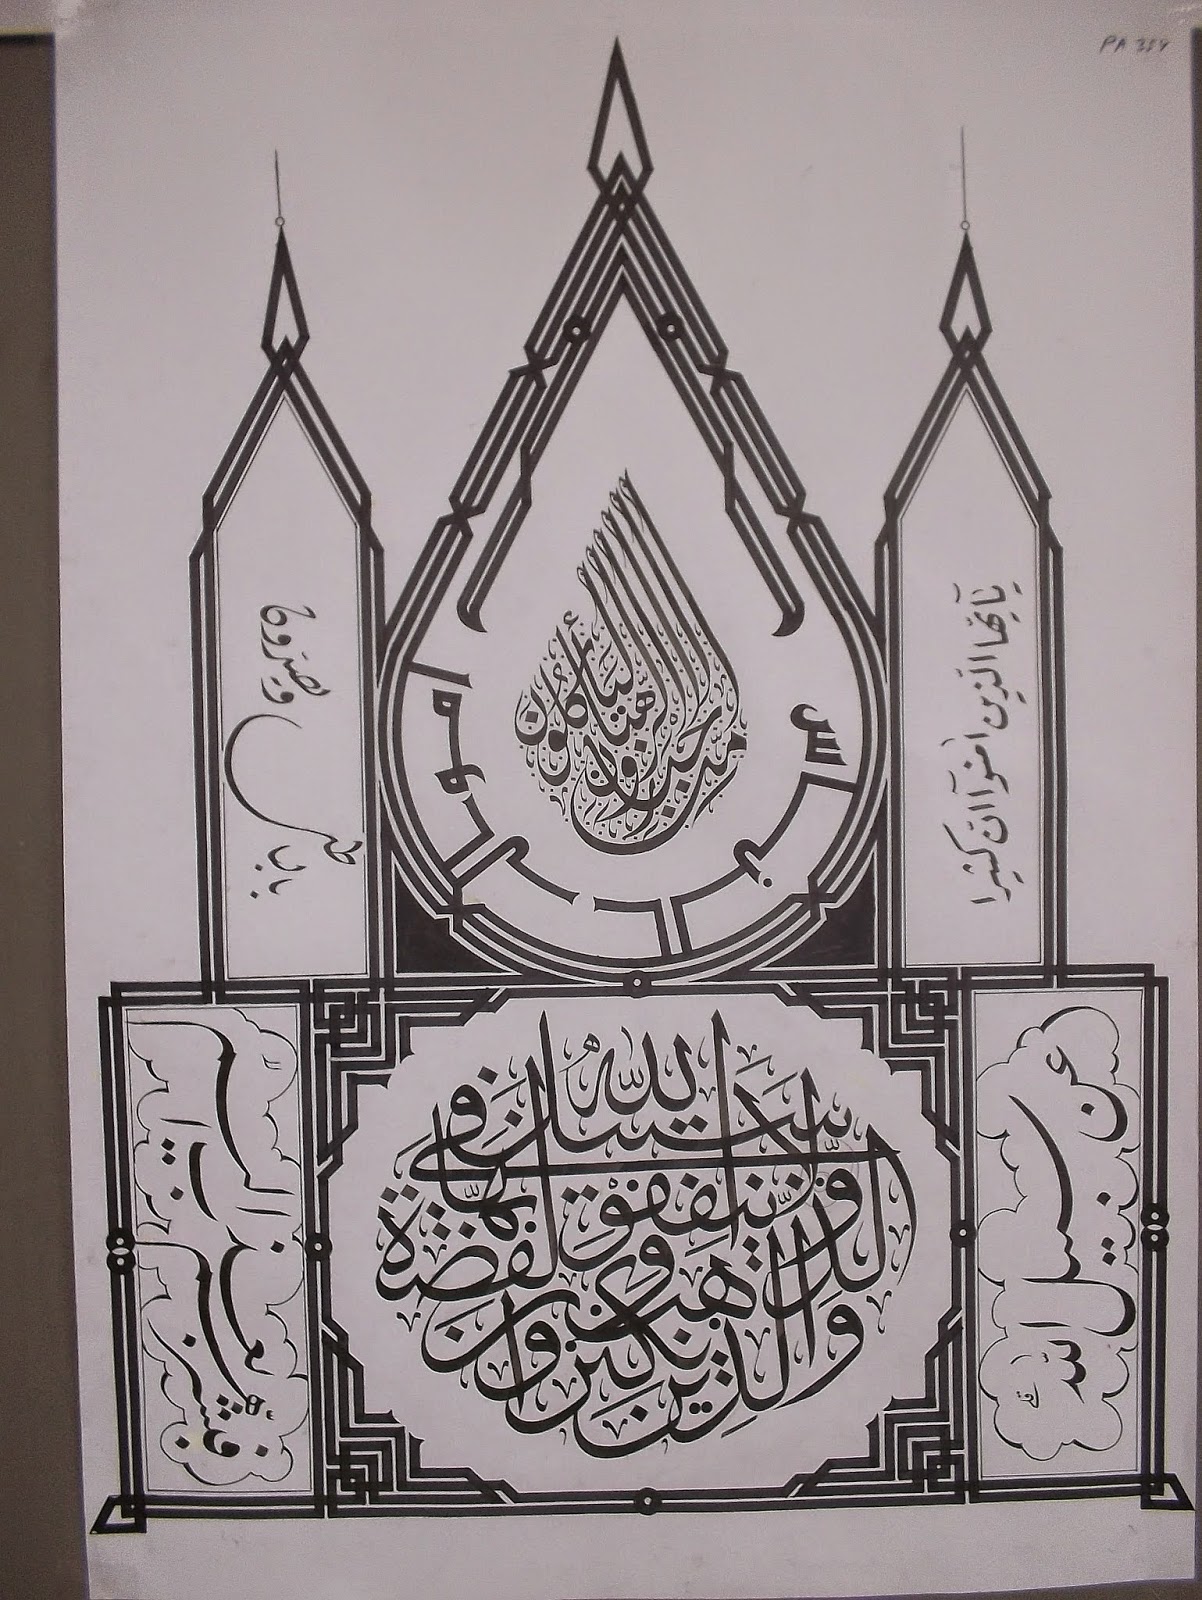 PA 359
يآيها الذين امنوآ ان كثيرا
من الاحبار والرهبان ليأكلون
اموال الناس
بالباطل ويصدون
عن سبيل الله
والذين يكنزون الذهب والفضة ولا ينفقونها في سبيل الله
فبشرهم بعذاب اليم